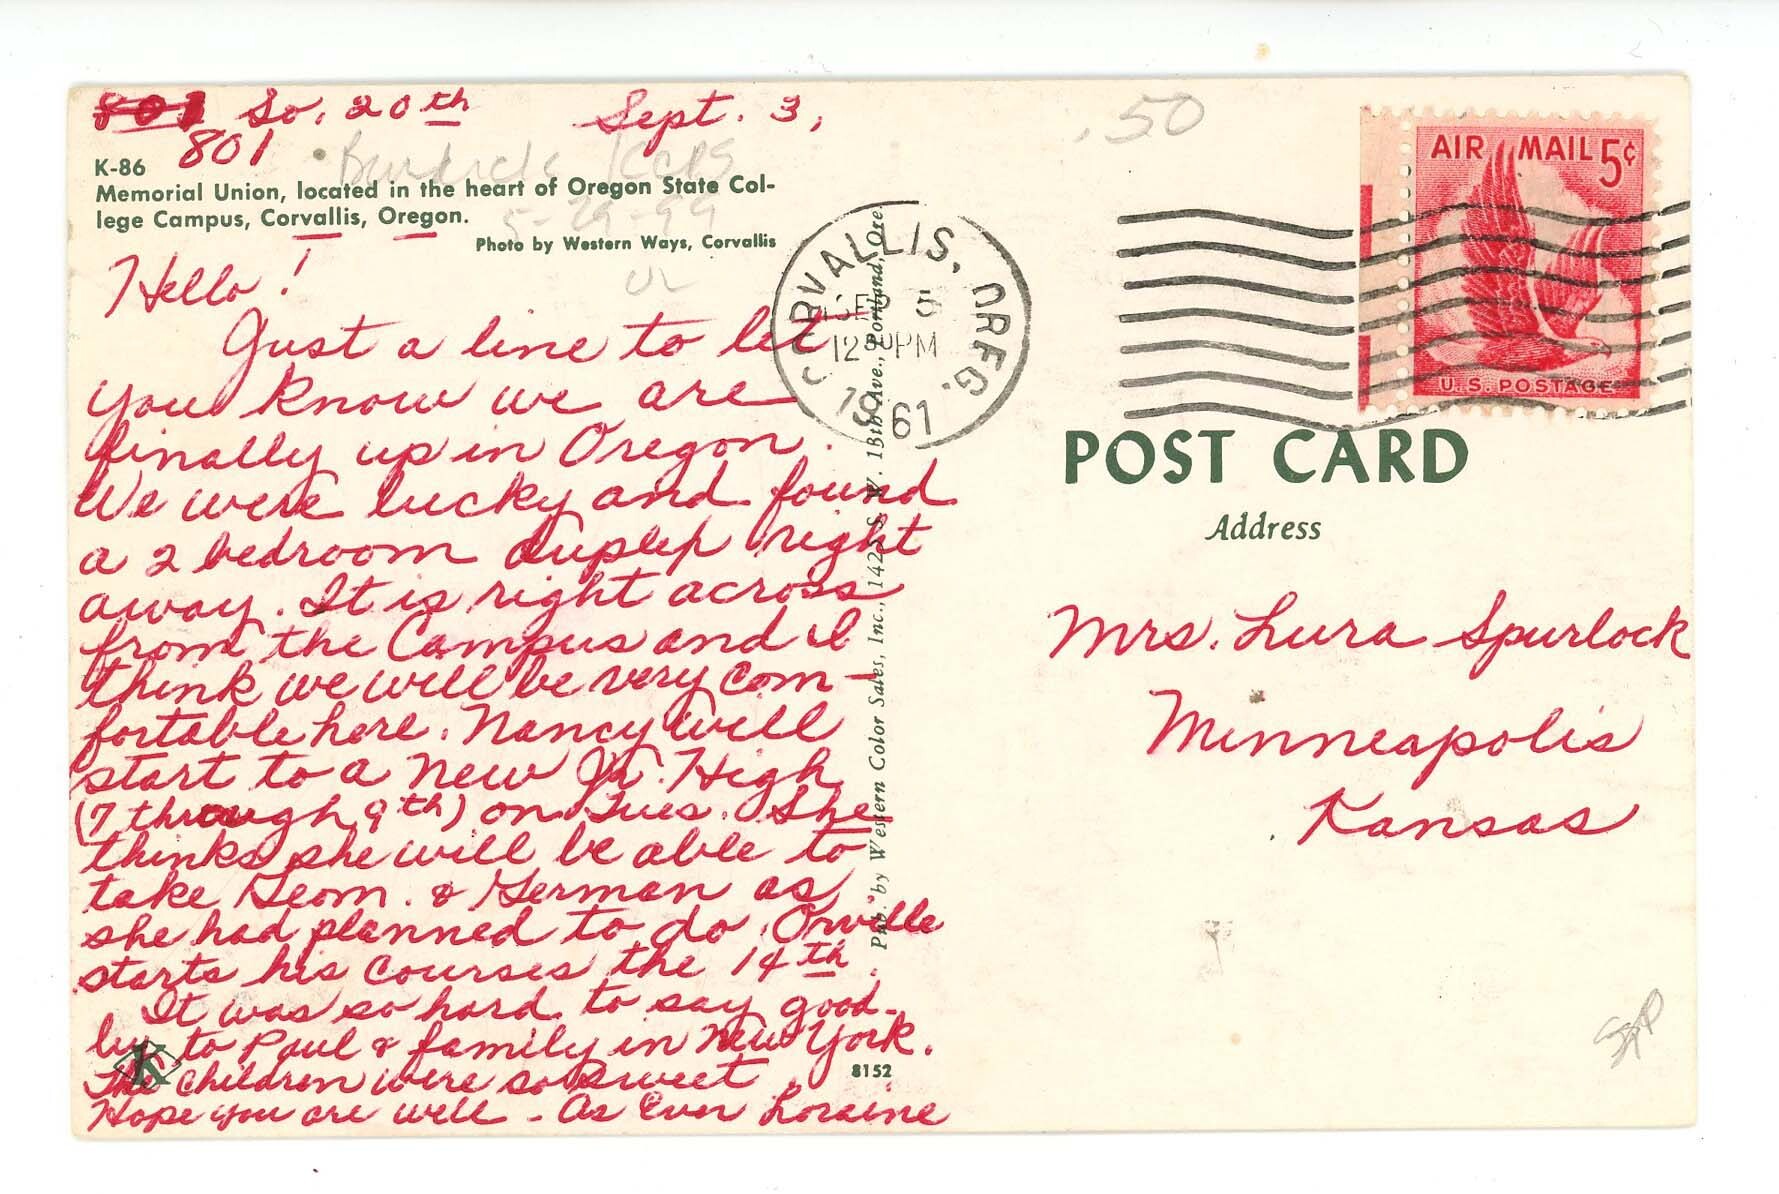 801 So. 20th Sept. 3,
801
.50
K-86
Memorial Union, located in the heart of Oregon State Col-
lege Campus, Corvallis, Oregon.
Photo by Western Ways, Corvallis
5-29-99
Hello!
Just a line to let
you know we are
finally up in Oregon.
We were lucky and found
a 2 bedroom duplex right
away. It is right across
from the Campus and I
think we will be very com-
fortable here. Nancy will
start to a new Jr. High
(7 through 9th) on Tues. She
thinks she will be able to
take Geom. & German as
she had planned to do. Orville
starts his courses the 14th.
It was so hard to say good-
by to Paul & family in New York.
The children were so sweet.
Hope you are well - As Ever Loraine
K
8152
Pub. by Western Color Sales, Inc., 1425 S. W. 18th Ave., Portland, Ore.
CORVALLIS, OREG.
SEP 5
12 PM
1961
AIR MAIL 5¢
U.S. POSTAGE
POST CARD
Address
Mrs. Lura Spurlock
Minneapolis
Kansas